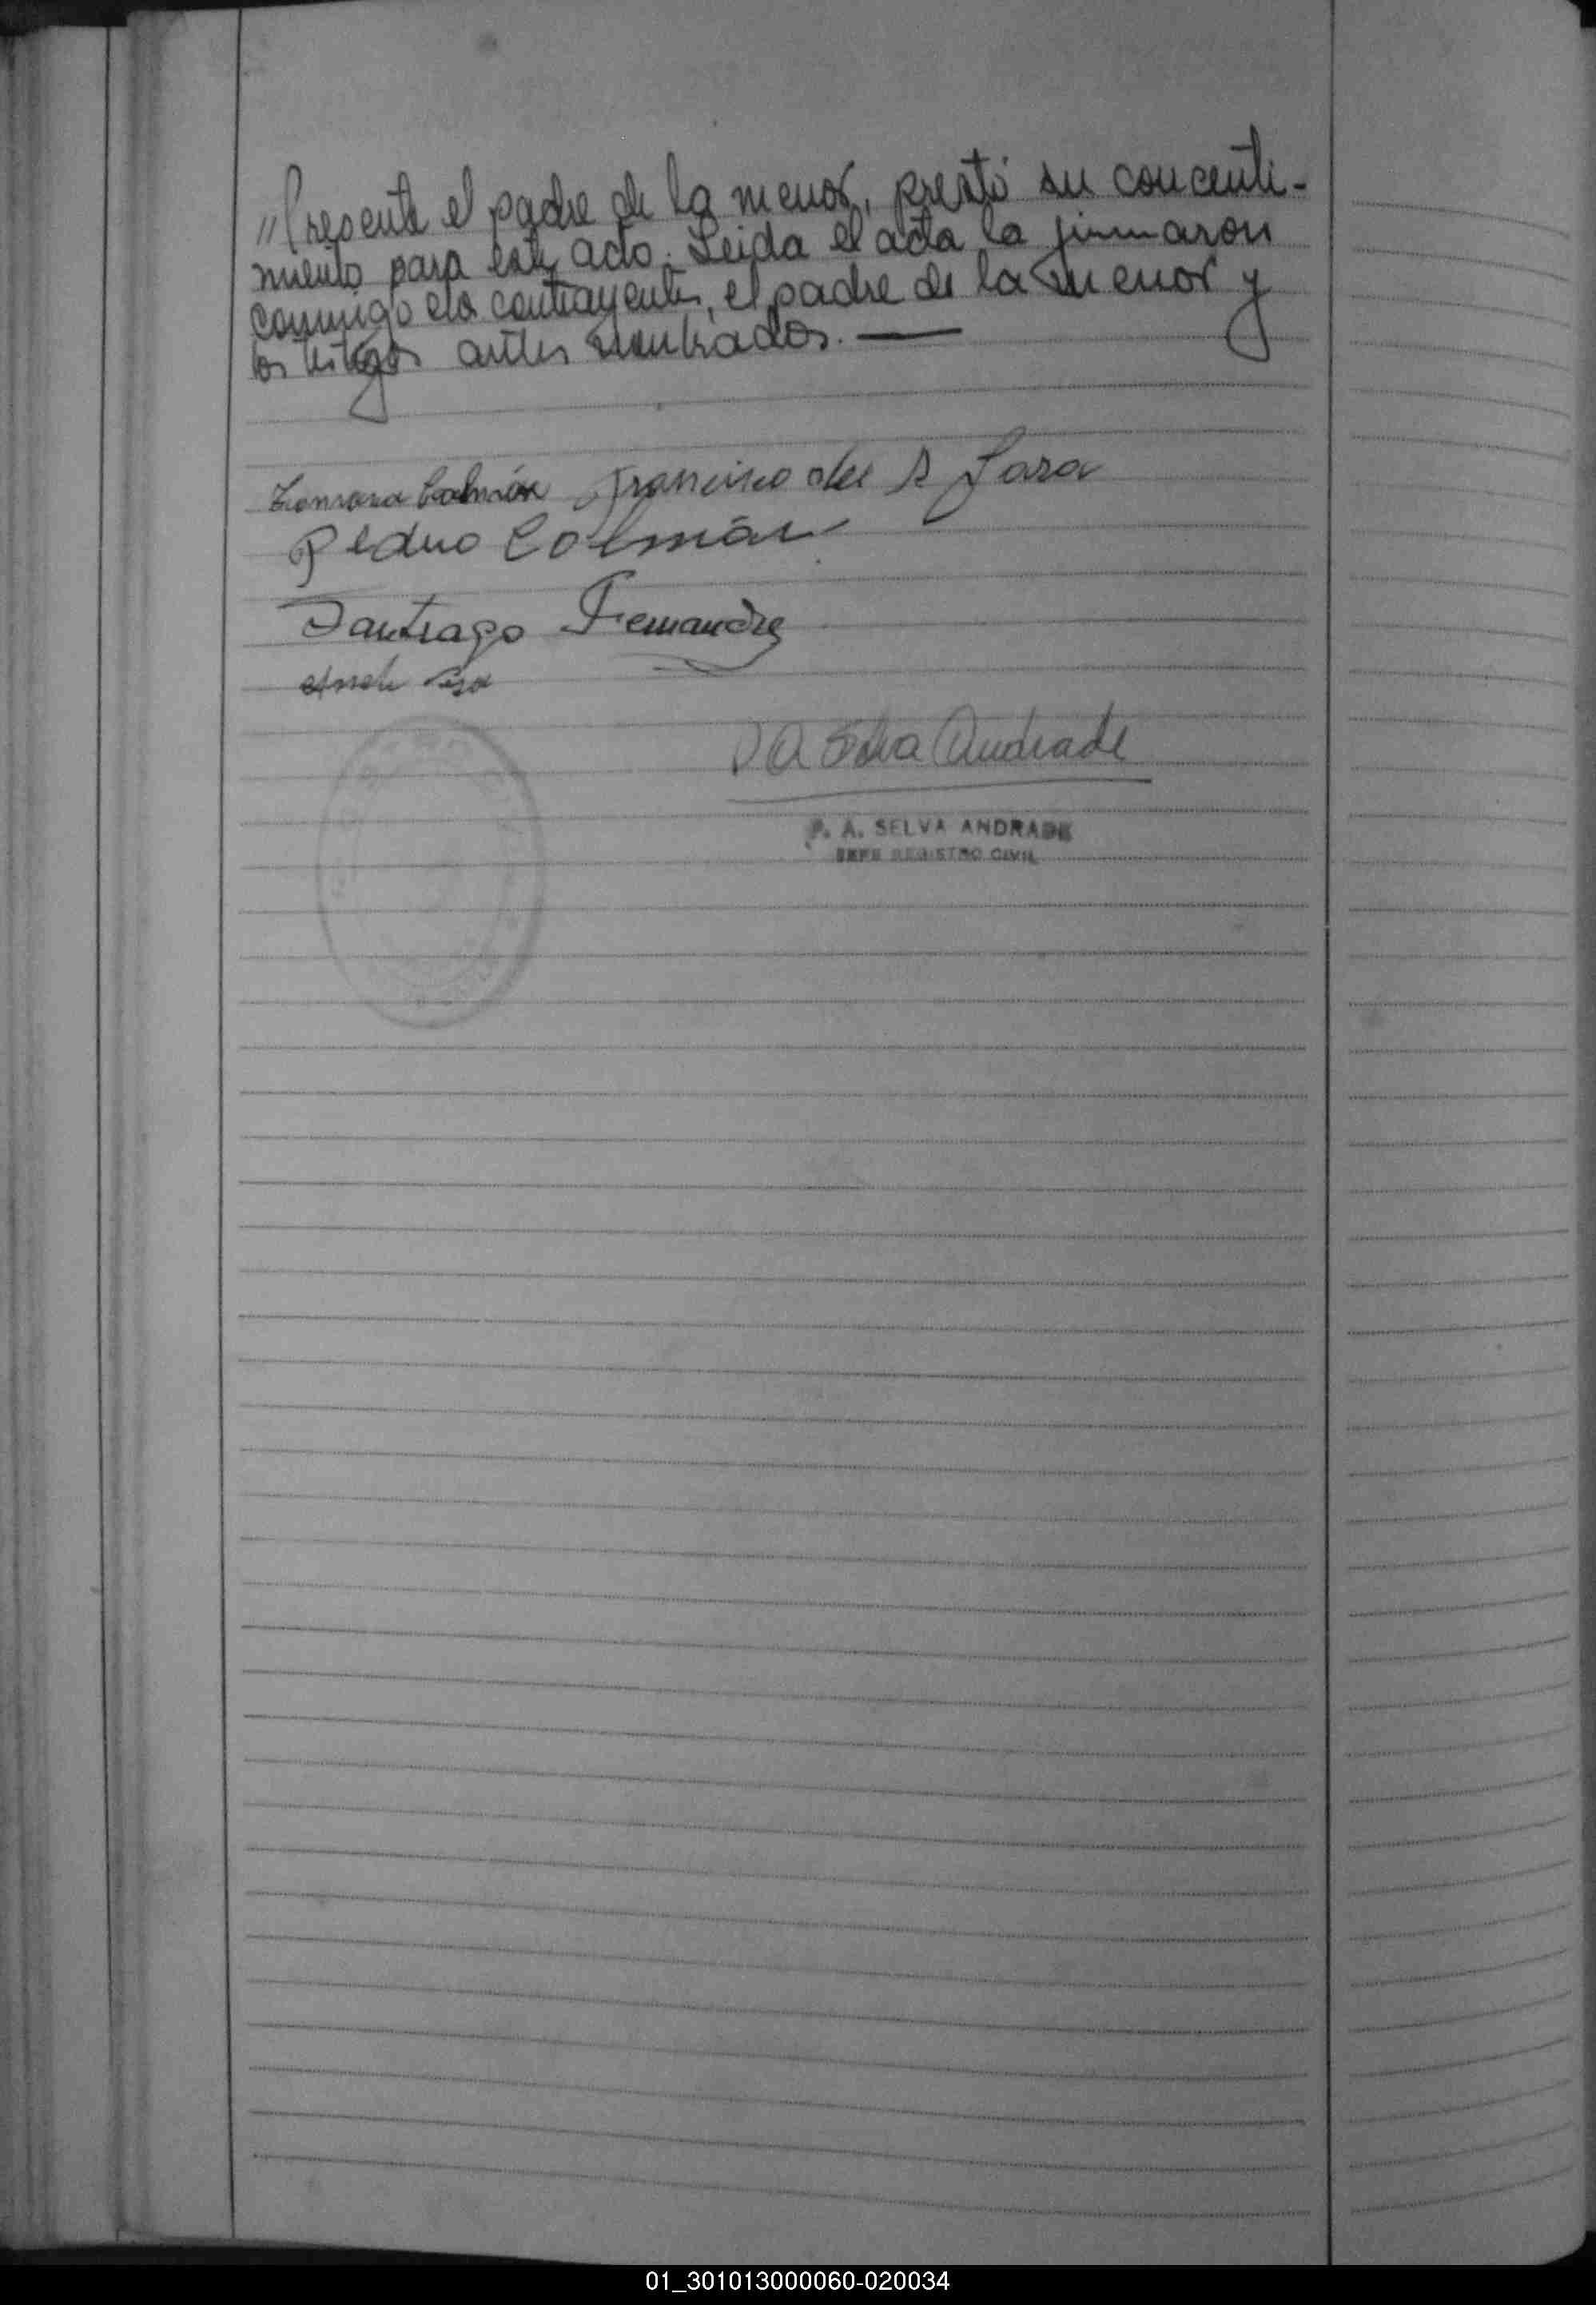 "Presente el padre de la menor, prestó su concenti-
miento para este acto. Leida el acta la firmaron
conmigo los contrayentes, el padre de la menor y
los testigos antes nombrados. —
Colmán Francisco del R Jara
Pedro Colmán
Santiago Fernandez
P A Selva Andrade
P. A. SELVA ANDRADE
JEFE REGISTRO CIVIL
01_301013000060-020034